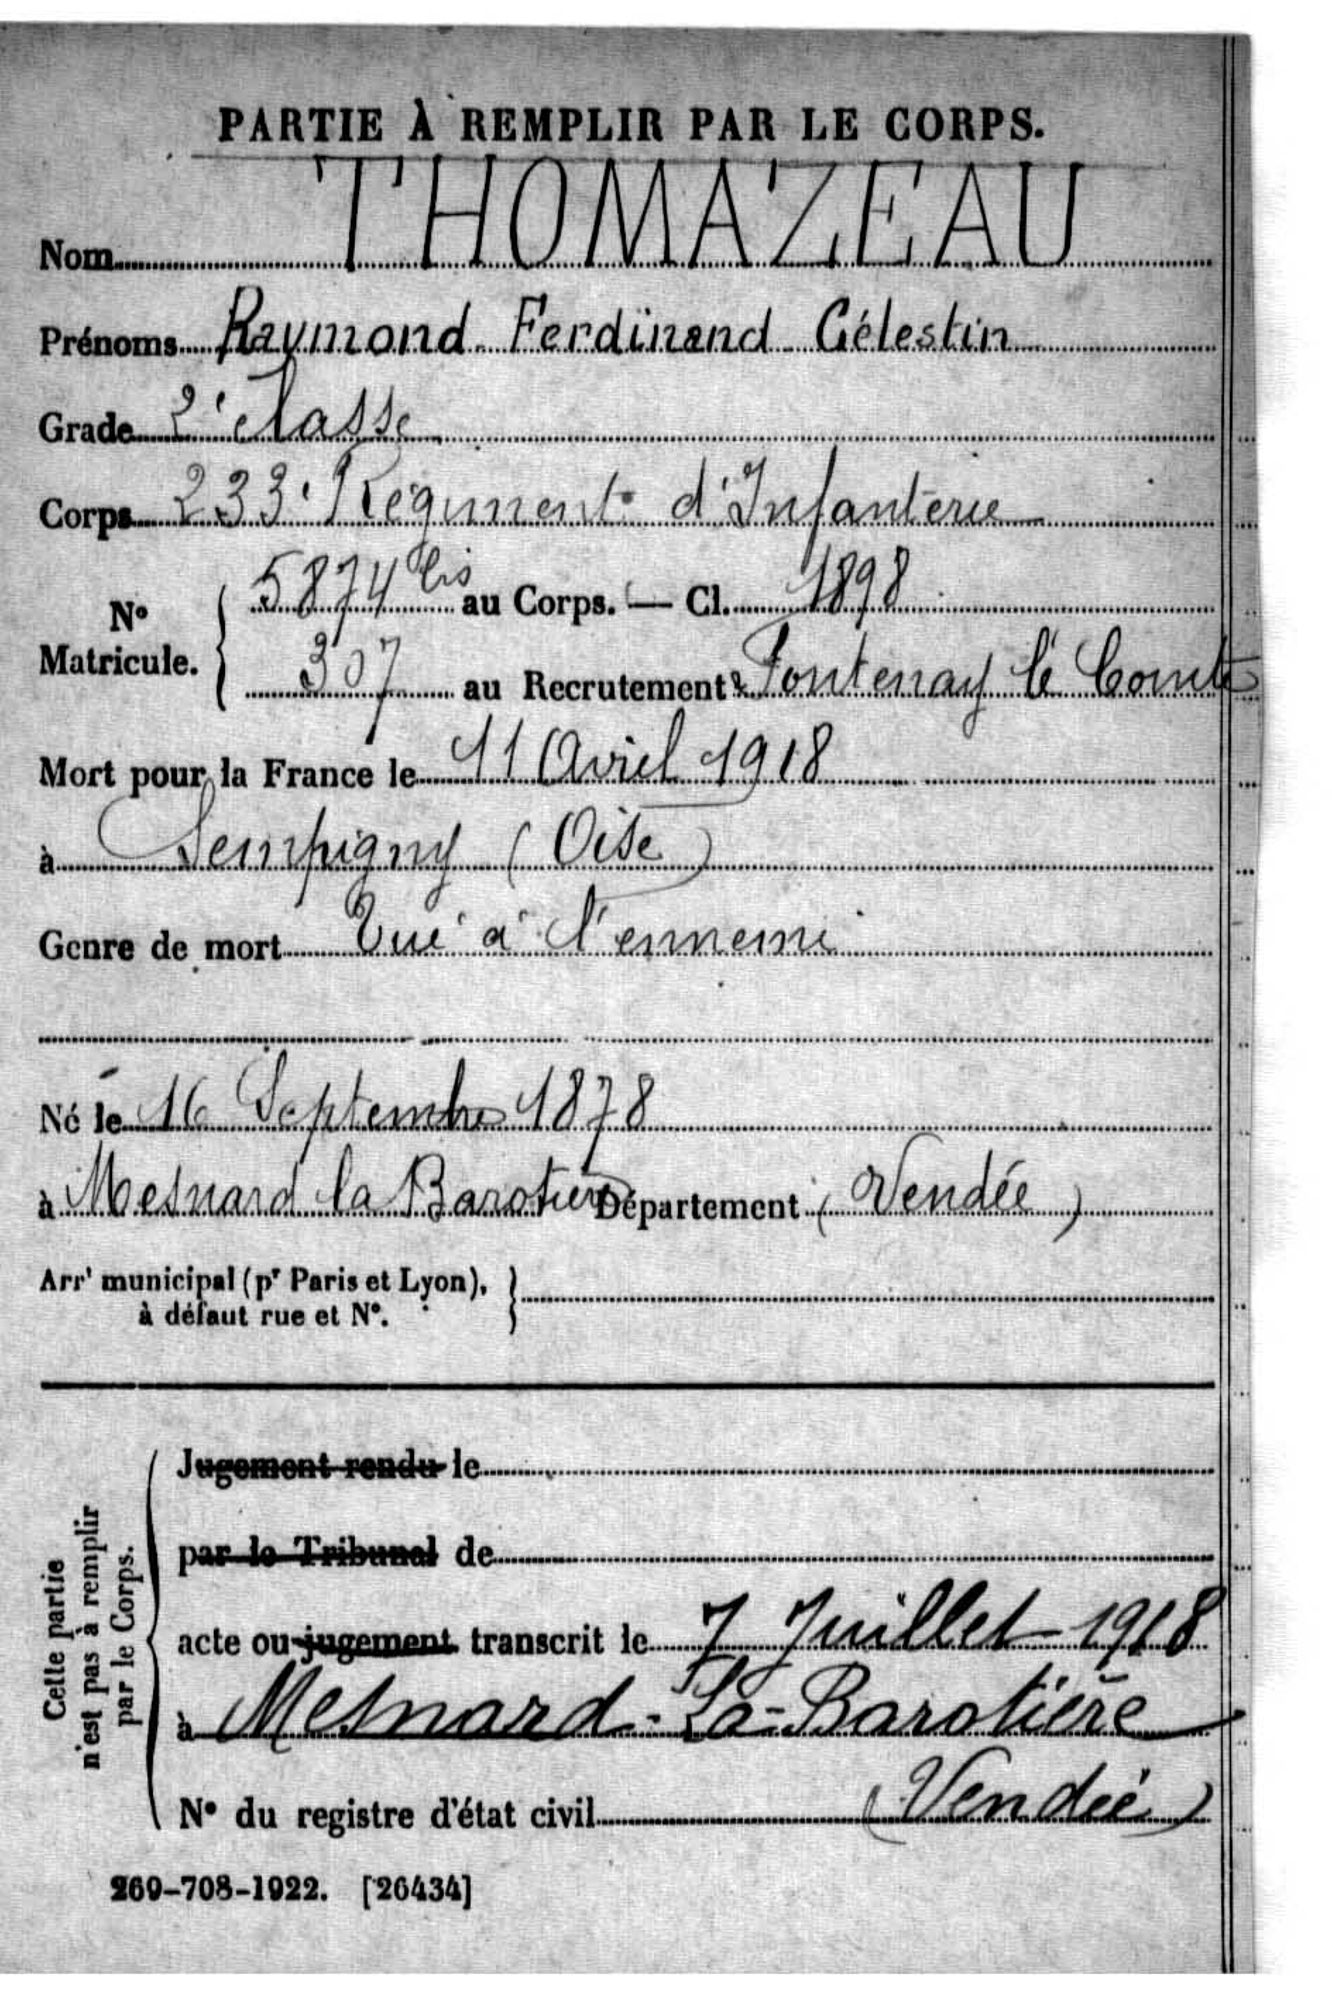 PARTIE À REMPLIR PAR LE CORPS.
Nom THOMAZEAU
Prénoms Raymond Ferdinand Célestin
Grade 2e classe
Corps 233e Régiment d'Infanterie
N° Matricule. { 5874 bis au Corps. — Cl. 1898
307 au Recrutement Fontenay le Comte
Mort pour la France le 11 Avril 1918
à Sempigny (Oise)
Genre de mort Tué à l'ennemi
Né le 16 Septembre 1878
à Mesnard la Barotière Département (Vendée)
Arrt municipal (pr Paris et Lyon), }
à défaut rue et N°.
Cette partie
n'est pas à remplir
par le Corps.
Jugement rendu le
par le Tribunal de
acte ou jugement transcrit le 7 Juillet 1918
à Mesnard-La-Barotière
N° du registre d'état civil (Vendée)
269-708-1922. [26434]